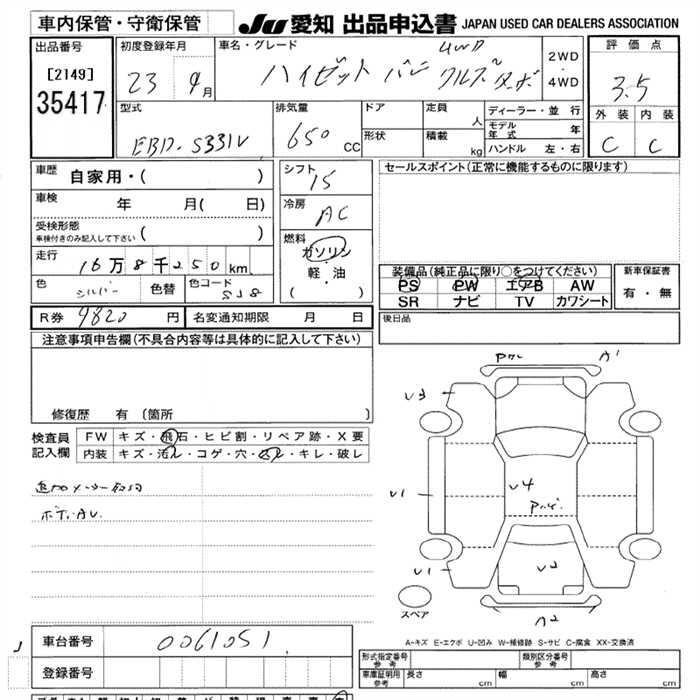 車内保管・守衛保管
JU 愛知 出品申込書 JAPAN USED CAR DEALERS ASSOCIATION
出品番号
[2149]
35417
初度登録年月
23 年 9 月
車名・グレード
4WD
ハイゼット バン クルーズターボ
2WD
4WD
評価点
3.5
外装 内装
C C
型式
EBD-S331V
排気量
650 cc
ドア
形状
定員 人
積載 kg
ディーラー・並行
モデル年式 年
ハンドル 左・右
車歴
自家用・( )
車検 年 月( 日)
受検形態
車検付きのみ記入して下さい ( )
走行
16万8千250km
色 シルバー 色替 色コード S28
シフト
15
冷房
AC
燃料
ガソリン
軽・油
( )
セールスポイント(正常に機能するものに限ります)
装備品(純正品に限り○をつけてください)
PS PW エアB AW
SR ナビ TV カワシート
新車保証書
有・無
R券 9820 円 名変通知期限 月 日
後日品
注意事項申告欄(不具合内容等は具体的に記入して下さい)
修復歴 有 〔箇所 〕
検査員記入欄
FW キズ・飛石・ヒビ割・リペア跡・X要
内装 キズ・汚レ・コゲ・穴・スレ・キレ・破レ
追加メーター
ボディAU
A1
U3
U1
U4
U1
U2
A2
スペア
A-キズ E-エクボ U-凹み W-補修跡 S-サビ C-腐食 XX-交換済
車台番号 0061051
登録番号
形式指定番号 参考
類別区分番号 参考
車庫証明用 参考 長さ cm 幅 cm 高さ cm